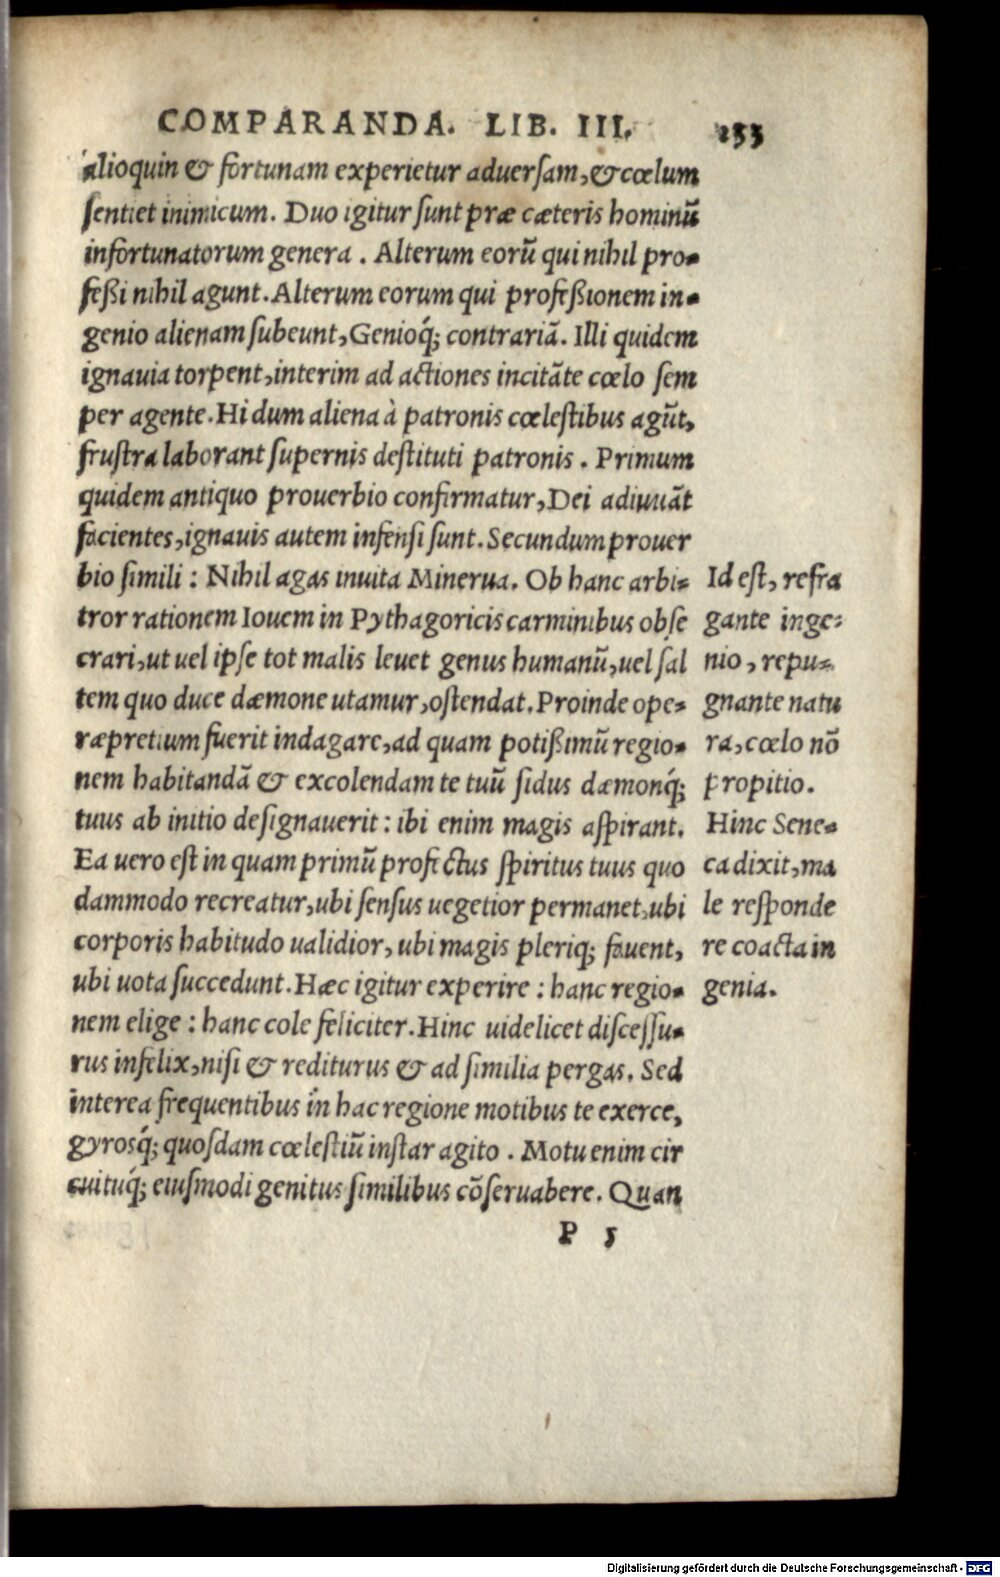 COMPARANDA. LIB. III. 233
alioquin & fortunam experietur aduersam, & cœlum
sentiet inimicum. Duo igitur sunt præ cæteris hominũ
infortunatorum genera. Alterum eorũ qui nihil pro-
feßi nihil agunt. Alterum eorum qui profeßionem in-
genio alienam subeunt, Genioq́; contrariã. Illi quidem
ignauia torpent, interim ad actiones incitãte cœlo sem
per agente. Hi dum aliena à patronis cœlestibus agũt,
frustra laborant supernis destituti patronis. Primum
quidem antiquo prouerbio confirmatur, Dei adiuuãt
facientes, ignauis autem infensi sunt. Secundum prouer
bio simili: Nihil agas inuita Minerua. Ob hanc arbi-
tror rationem Iouem in Pythagoricis carminibus obse
crari, ut uel ipse tot malis leuet genus humanũ, uel sal
tem quo duce dæmone utamur, ostendat. Proinde ope-
ræpretium fuerit indagare, ad quam potißimũ regio-
nem habitandã & excolendam te tuũ sidus dæmonq́;
tuus ab initio designauerit: ibi enim magis aspirant.
Ea uero est in quam primũ profectus spiritus tuus quo
dammodo recreatur, ubi sensus uegetior permanet, ubi
corporis habitudo ualidior, ubi magis pleriq; fauent,
ubi uota succedunt. Hæc igitur experire: hanc regio-
nem elige: hanc cole feliciter. Hinc uidelicet discessu-
rus infelix, nisi & rediturus & ad similia pergas. Sed
interea frequentibus in hac regione motibus te exerce,
gyrosq́; quosdam cœlestiũ instar agito. Motu enim cir
cuituq́; eiusmodi genitus similibus cõseruabere. Quan
P 5
Id est, refra
gante inge-
nio, repu-
gnante natu
ra, cœlo nõ
propitio.
Hinc Sene-
ca dixit, ma
le responde
re coacta in
genia.
Digitalisierung gefördert durch die Deutsche Forschungsgemeinschaft - DFG